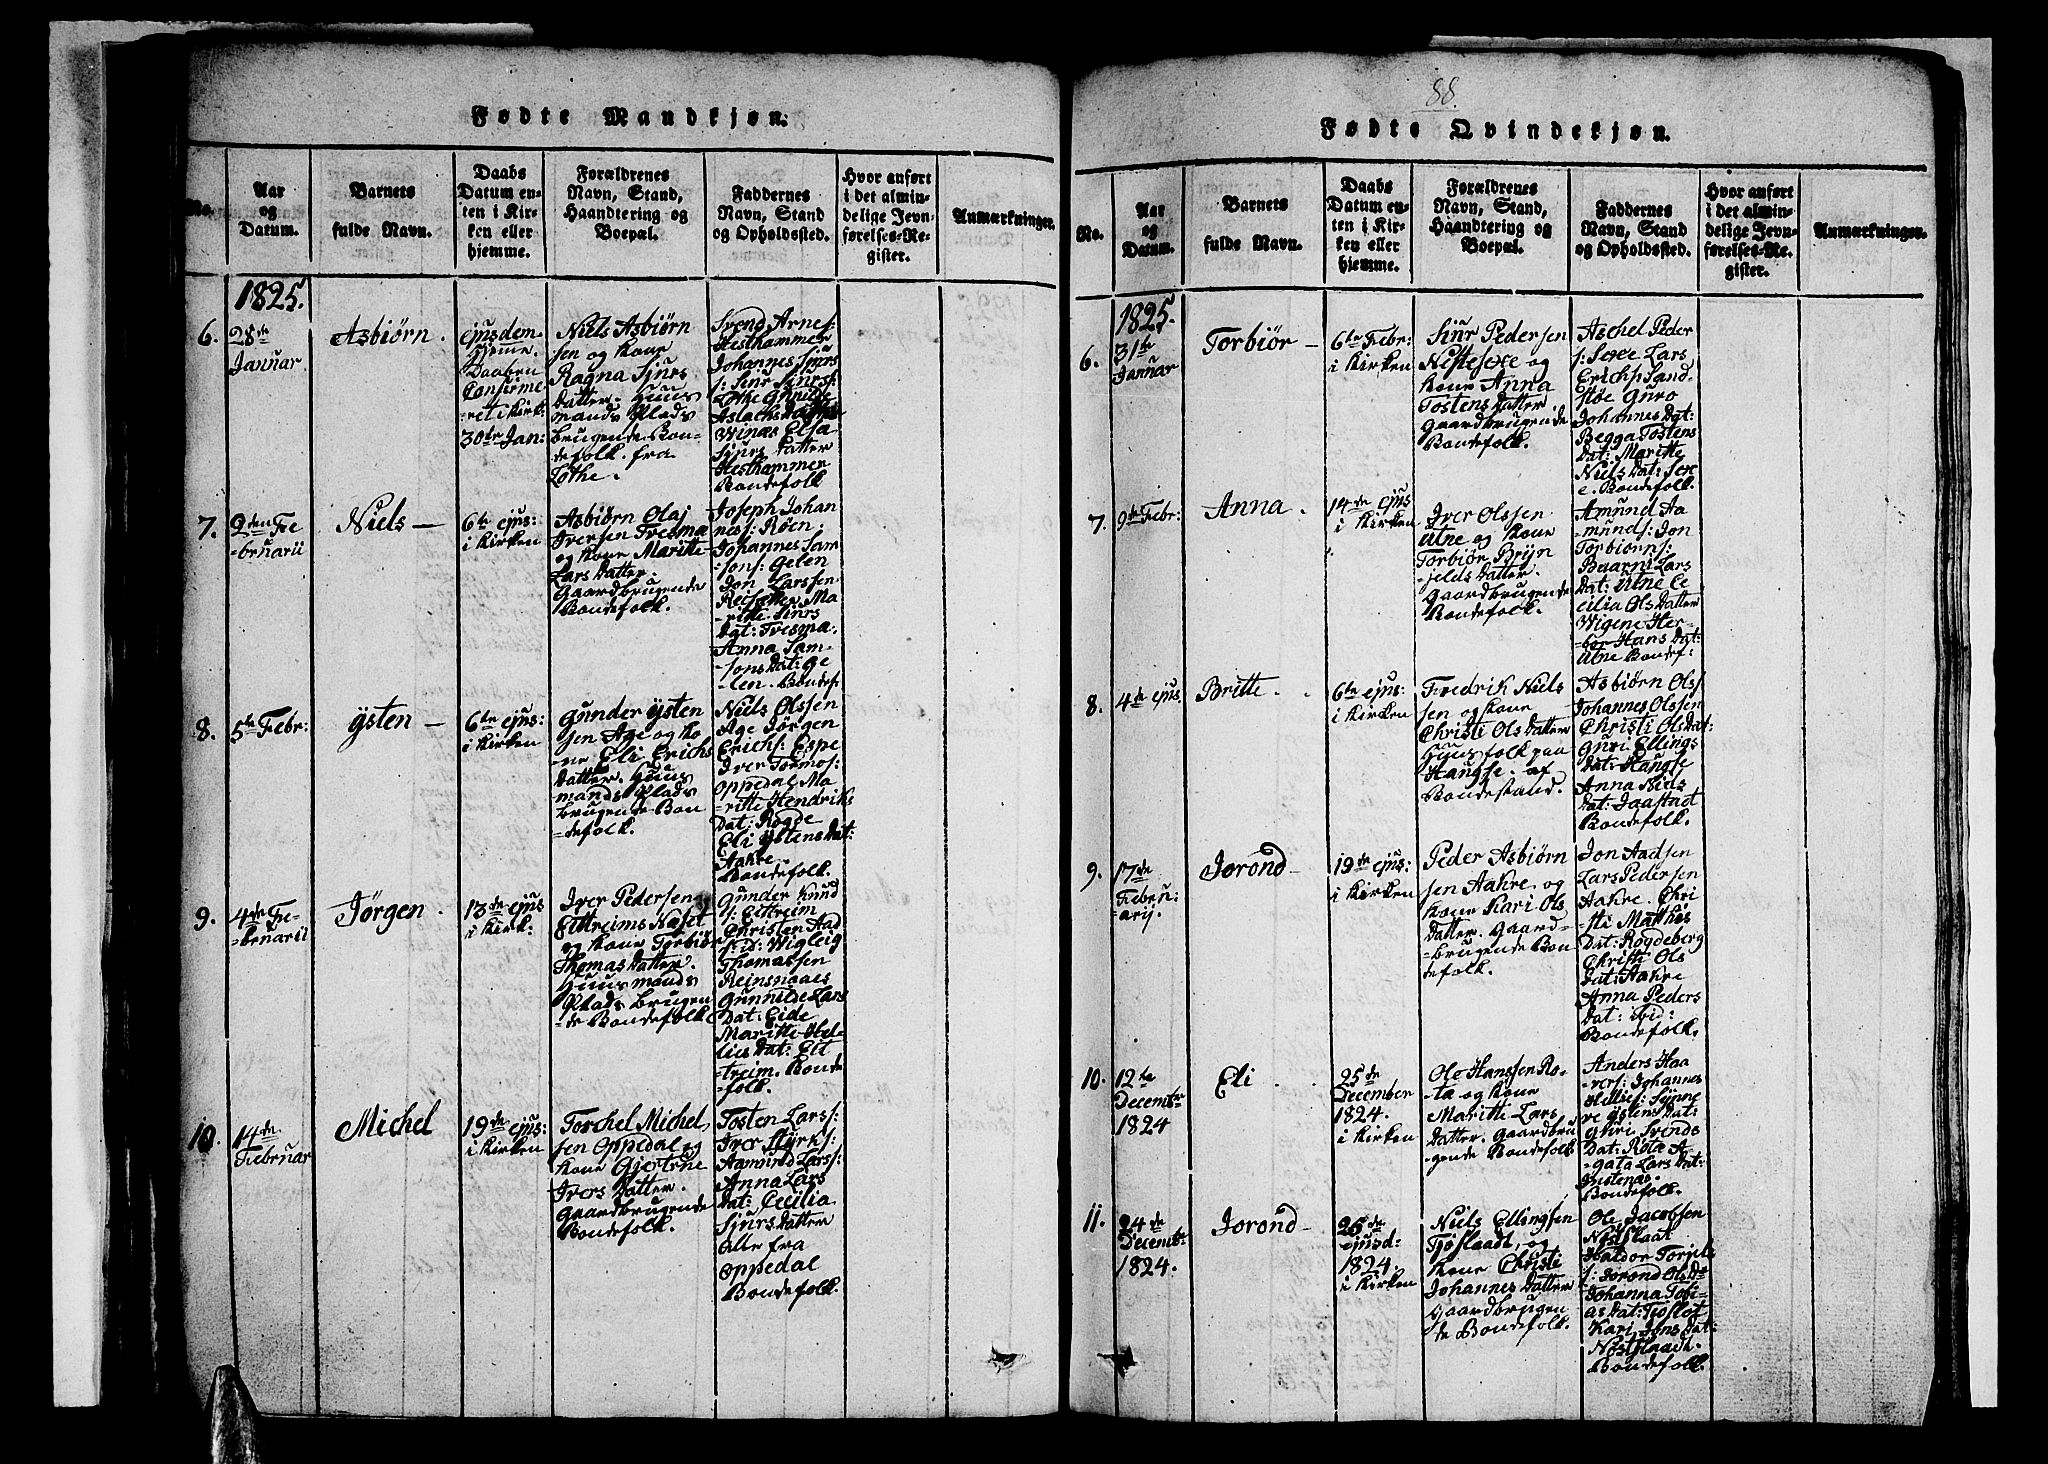 Fødte Mandkjøn.
No.
Aar
og
Datum.
Barnets
fulde Navn.
Daabs
Datum en-
ten i Kir-
ken eller
hjemme.
Forældrenes
Navn, Stand,
Haandtering og
Boepæl.
Faddernes
Navn, Stand
og Opholdssted.
Hvor anført
i det almin-
delige Jevn-
førelses-Re-
gister.
Anmærkninger.
1825.
6.
28de
Januar
Asbiørn.
ejusdem
hjeme.
Daaben
Confirme
-ret i Kirk:
30te Jan:
Niels Asbiørn
sen og Kone
Ragna Sjurs
Datter. Huus
mands Plads
brugende Bon-
defolk fra
Lothe.
Svend Arnes-
Hesthammer
Johannes Sjurs
s: Siur Siurs s:
Lothe Gunilde
Aslachs Datter
Winæs Elsa
Sjurs Datter
Hesthammer
Bondefolk
7.
2den Fe
-bruarii
Niels —
6te ejus:
i Kirken
Asbiørn Olaj
Iversen Tresma
og Kone Maritte
Lars Datter.
Gaardbrugende
Bondefolk.
Joseph Johan
nes s: Røen.
Johannes Sam
-son s: Gelen
Jon Larssen
Reisæter Ma
-ritte Siurs
Dat: Tresma.
Anna Sam-
sons Dat: Ge
-len. Bondef:
8.
5te Febr:
Ysten —
6te ejus:
i Kirken
Gunder Ysten
sen Age og Ko
-ne Eli Erichs
Datter. Huus
mands Plads
brugende Bon
=defolk.
Niels Olssen
Age Jørgen
Erichs: Espe
Iver Tormos:
Oppedal Ma
-ritte Hendriks
Dat: Rogde
Eli Ystens Dat:
Aakre.
Bondefolk.
9.
4de Fe-
-bruarii
Jørgen.
13de ejus
i Kirk:
Iver Pedersen
Eittreims Næset
og Kone Torbiør
Thomas Datter.
Huusmands
Plads brugen
-de Bondefolk
Gunder Knud
s: Eittreim
Christen Aad
s: id: Wigleig
Thomassen
Reinsnaaes
Gunnilde Lars
Dat: Eide
Maritte Hel-
lies Dat: Eit
-treim. Bonde
folk.
10.
14de
Februar
Michel
19de ejus:
i Kirken
Torchel Michel
sen Oppedal og
Kone Gjertrue
Ivers Datter.
Gaardbrugende
Bondefolk.
Tosten Lars s:
Iver Styrk s:
Aamund Lars s:
Anna Lars
Dat: Cecilia
Sjurs Datter
Alle fra
Oppedal
Bondefolk.
88.
Fødte Qvindekjøn.
No.
Aar
og
Datum.
Barnets
fulde Navn.
Daabs
Datum en-
ten i Kir-
ken eller
hjemme.
Forældrenes
Navn, Stand,
Haandtering og
Boepæl.
Faddernes
Navn, Stand
og Opholdssted.
Hvor anført
i det almin-
delige Jevn-
førelses-Re-
gister.
Anmærkninger.
1825.
6.
31te
Januar
Torbiør —
6te Febr:
i Kirken
Siur Pedersen
Nestesexe og
Kone Anna
Tostens Datter
Gaardbrugende
Bondefolk.
Aschel Peder
s: Sexe Lars
Erichs Sand-
støe Guro
Johannes Dat:
Begga Tostens
Dat: Maritte
Niels Dat: Sex
e. Bondefolk.
7.
9de Febr:
Anna.
14de ejus
i Kirken
Iver Olssen
Utne og Kone
Torbiør Brÿn
-jelds Datter.
Gaardbrugende
Bondefolk.
Amund Aa
-munds: Jon
Torbiørns:
Baarni Lars
Dat: Utne Ce
cilia Ols Datter
Wigene Her-
bor Hans Dat:
Utne Bondef:
8.
4de ejus.
Britte.
6te ejus:
i Kirken
Fredrik Niels
sen og Kone
Christi Ols Datter
Huusfolk paa
Haugse. af
Bondestand.
Asbiørn Ols s
Johannes Olssen
Christi Ols Dat:
Guri Ellings
Dat: Haugse
Anna Niels
Dat: Jaastad
Bondefolk.
9.
17de
Februa
-arij.
Jorond —
19de ejus:
i Kirken
Peder Asbiørn
sen Aakre og
Kone Kari Ols
Datter. Gaard-
-brugende Bon
defolk.
Jon Aadsen
Lars Pedersen
Aakre. Chri
-sti Matthis
Dat: Rogdeberg
Christi Ols
Dat: Aakre
Anna Peders
Dat: ibid:
Bondefolk.
10.
12te
Decembr
1824
Eli
25de
December
1824.
i Kirken
Ole Hanssen Ro-
ta og Kone
Maritte Lars
Datter. Gaardbru
-gende Bondefolk
Anders Haa
-vers: Johannes
Hellies: Synne
ve Ystens Dat:
Guri Svends
Dat: Rota A-
-gata Lars Dat:
Bondefolk.
11.
24de
Decembr
1824.
Jorond —
26de
ejusd:
1824.
i Kirken
Niels Ellingsen
Tjoflaadt og
Kone Christi
Johannes Datter
Gaardbrugen
de Bondefolk.
Ole Jacobsen
Nøstflaat
Haldor Torjels
s: Jorond Ols Dr
Johanna Tobi-
as Dat: Tjoflot
Kari Jons Dat:
Nøstflaadt.
Bondefolk.